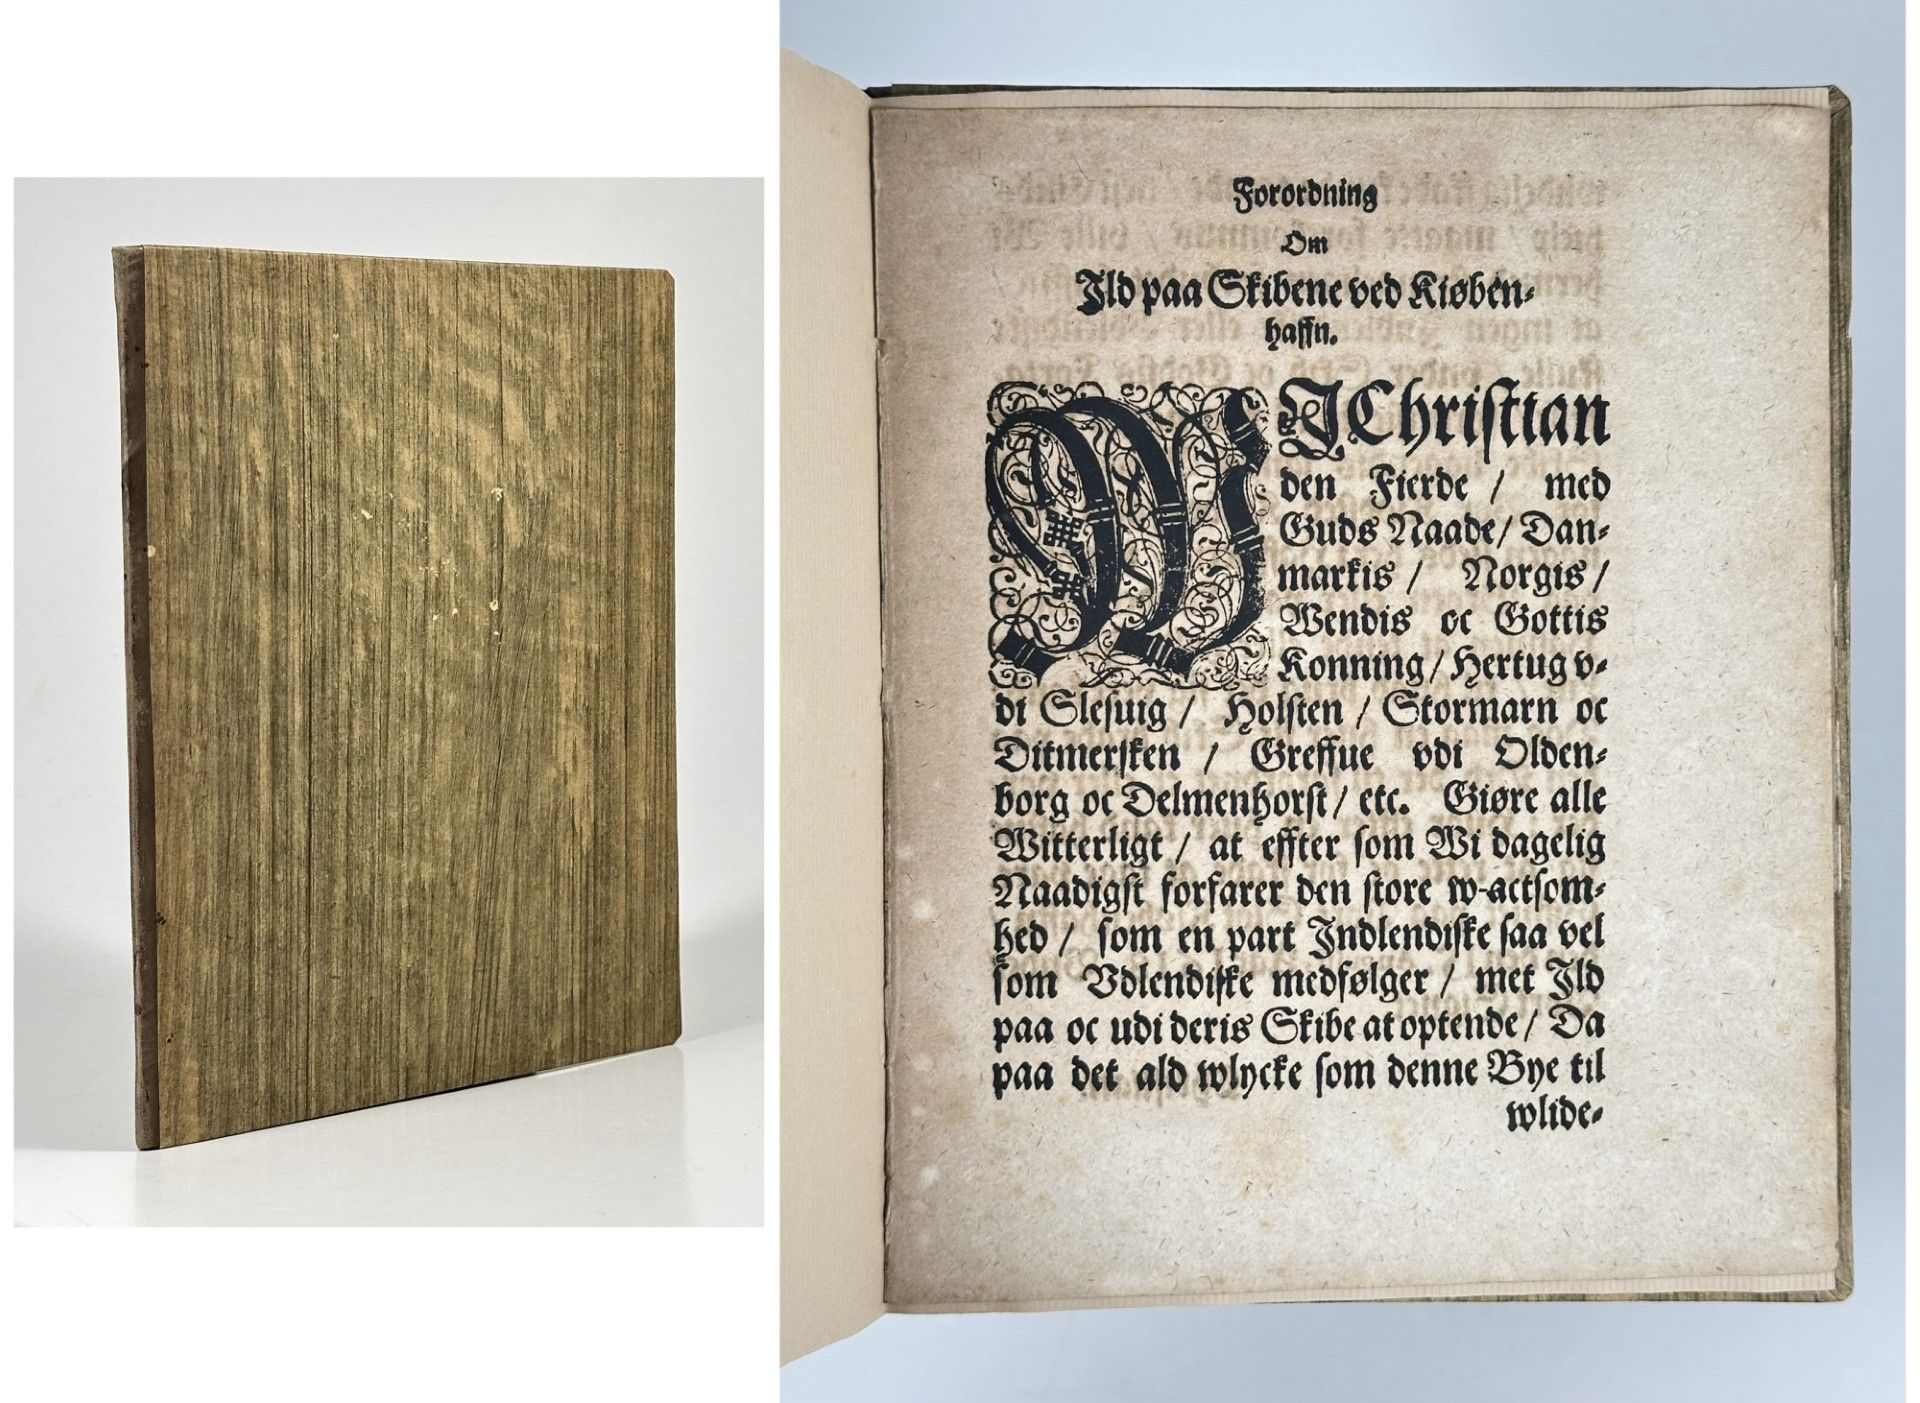 Forordning
Om
Ild paa Skibene ved Kiøben-
haffn.
WI Christian
den Fierde / med
Guds Naade / Dan-
markis / Norgis /
Wendis oc Gottis
Konning / Hertug v-
di Slesuig / Holsten / Stormarn oc
Ditmersken / Greffue vdi Olden-
borg oc Delmenhorst / etc. Giøre alle
Witterligt / at effter som Wi dagelig
Naadigst forfarer den store w-actsom-
hed / som en part Indlendiske saa vel
som Vdlendiske medfølger / met Ild
paa oc udi deris Skibe at optende / Da
paa det ald wlycke som denne Bye til
wlide-